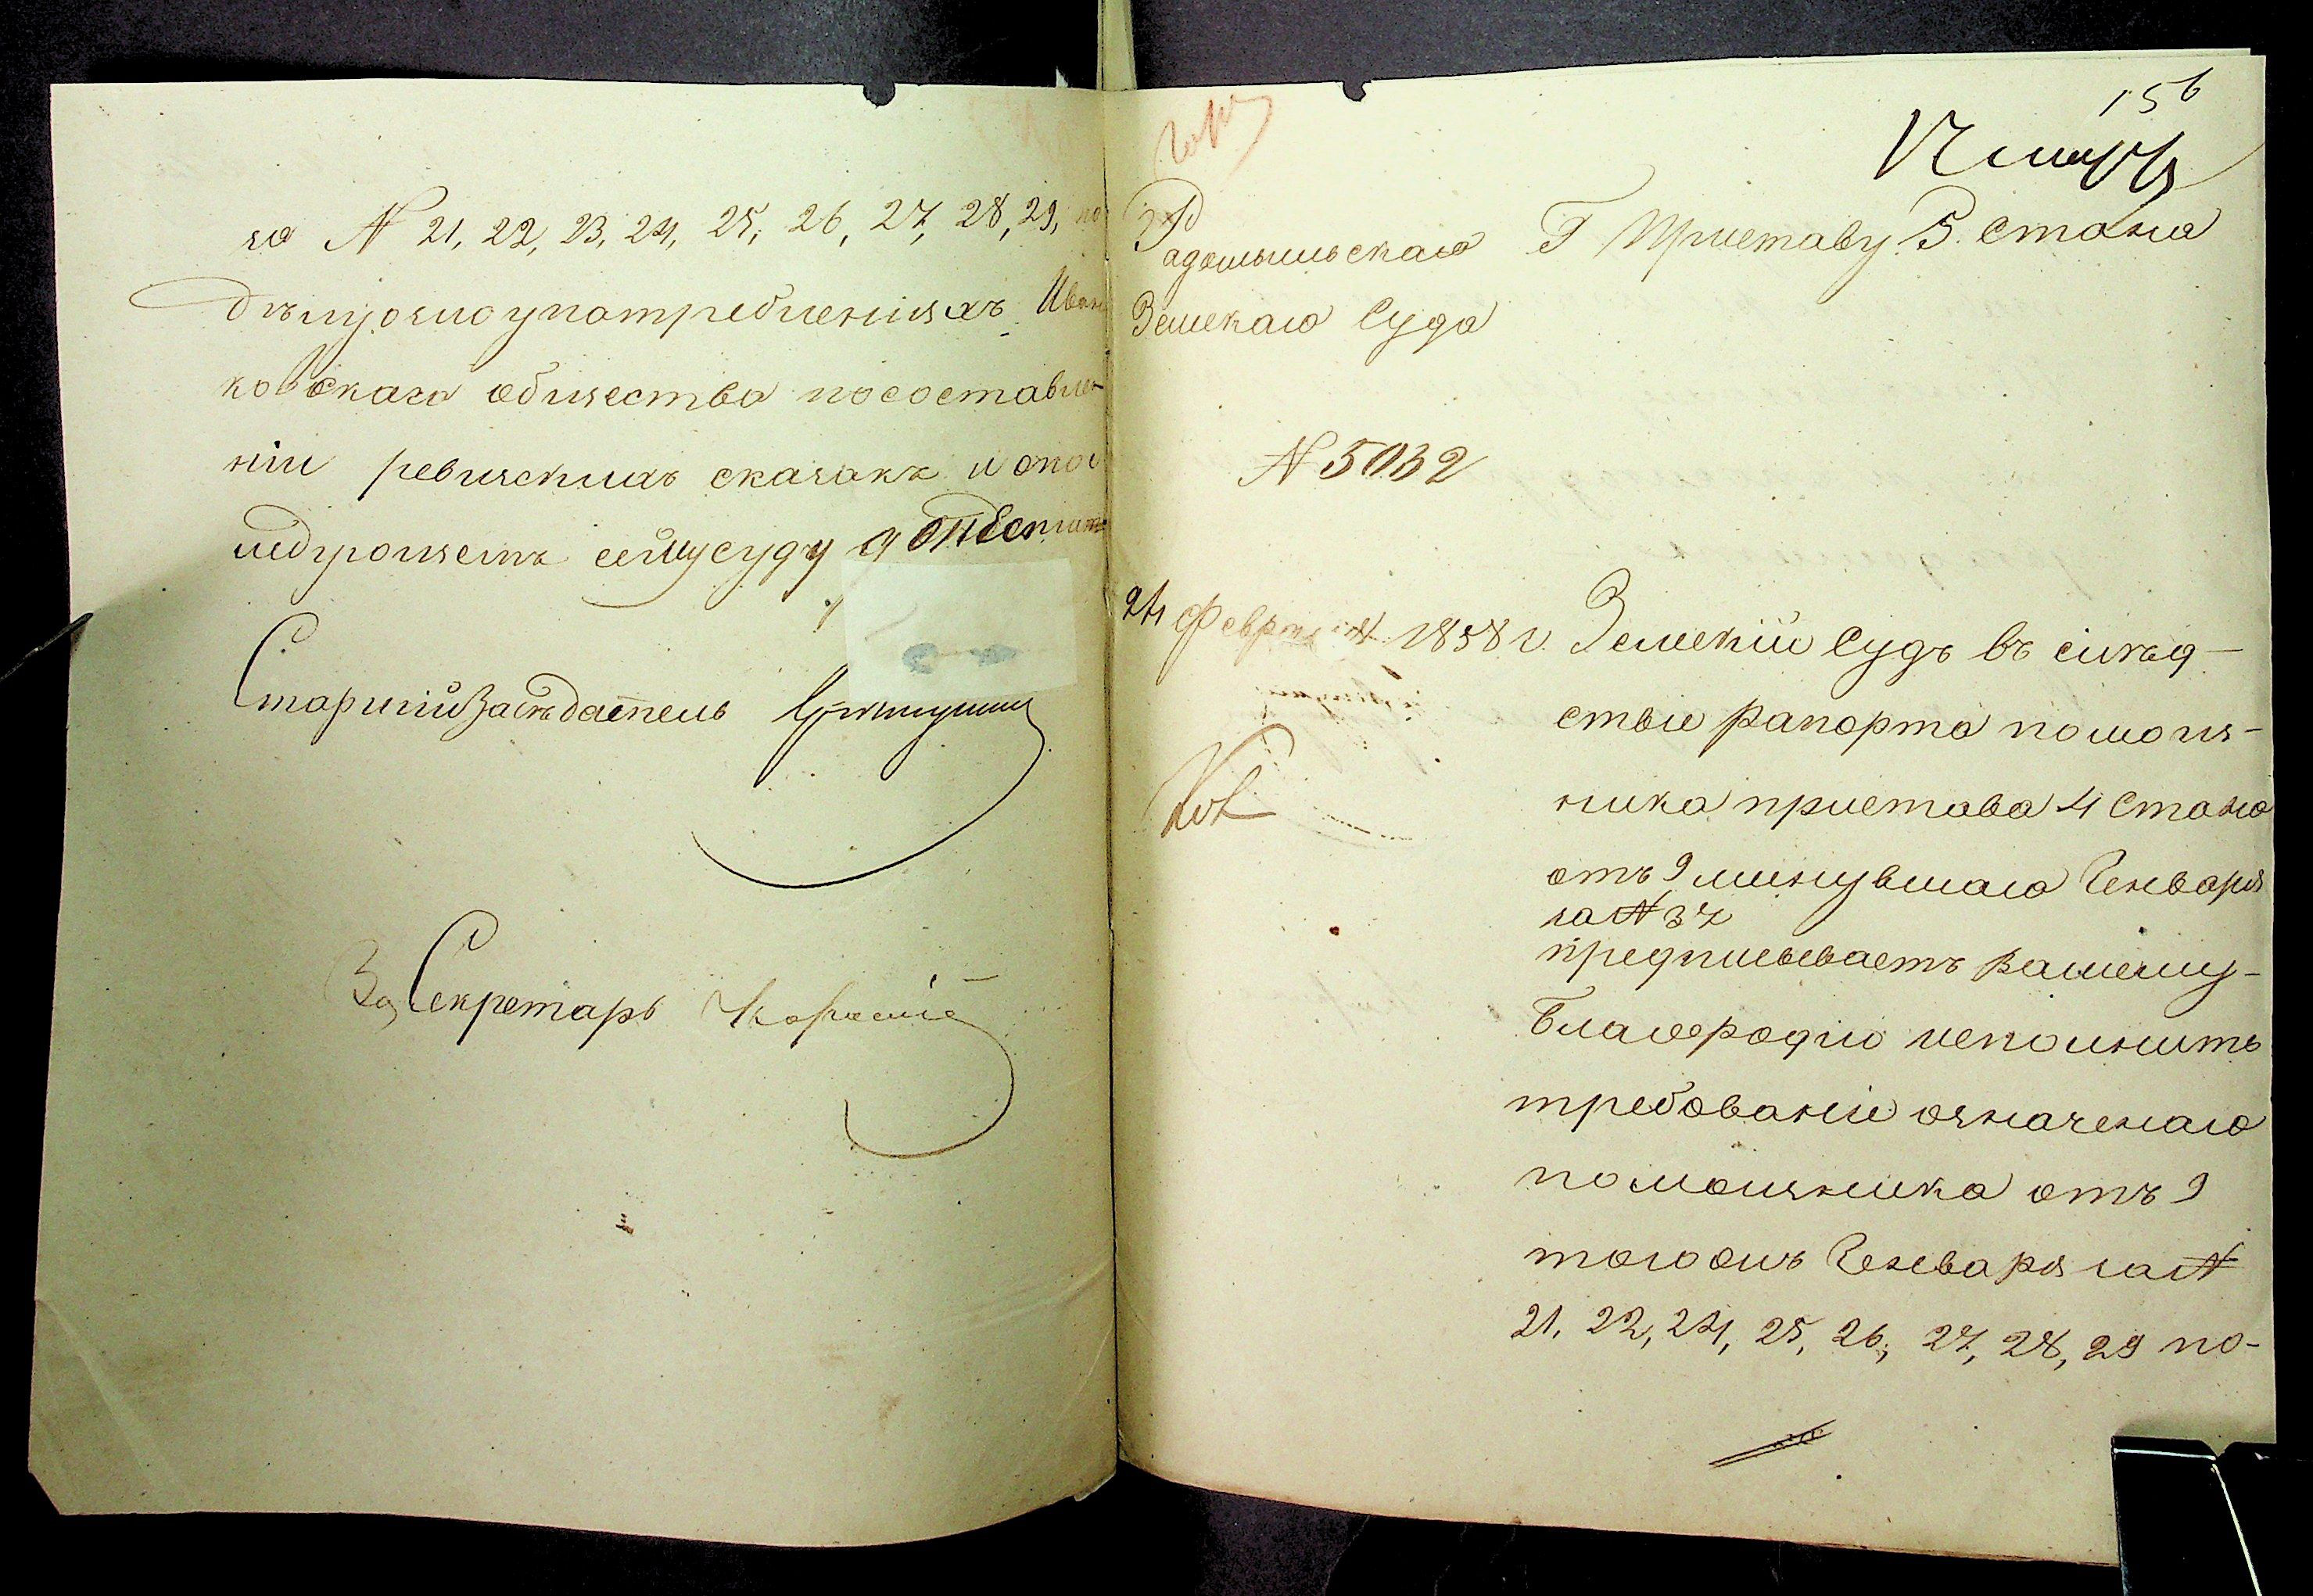 за N 21, 22, 23, 24, 25, 26, 27, 28, 29, по
дѣлу о злоупотребленіяхъ Иван
ковскаго общества по составле
ніи ревизскихъ сказакъ и
сему суду
Старшій Засѣдатель
За Секретарь
156
Радомысльскаго
Земскаго Суда
N 5032
24 Февраля 1858 г.
Г Приставу 5. Стана
Земскій Судъ въ слѣд-
ствіе рапорта помощ-
ника пристава 4 Стана
отъ 9 минувшаго Генваря
за N 37
предписываетъ Вашему-
Благородію исполнить
требованіе означенаго
помощника отъ 9
того жъ Генваря за N
21, 22, 24, 25, 26, 27, 28, 29 по-